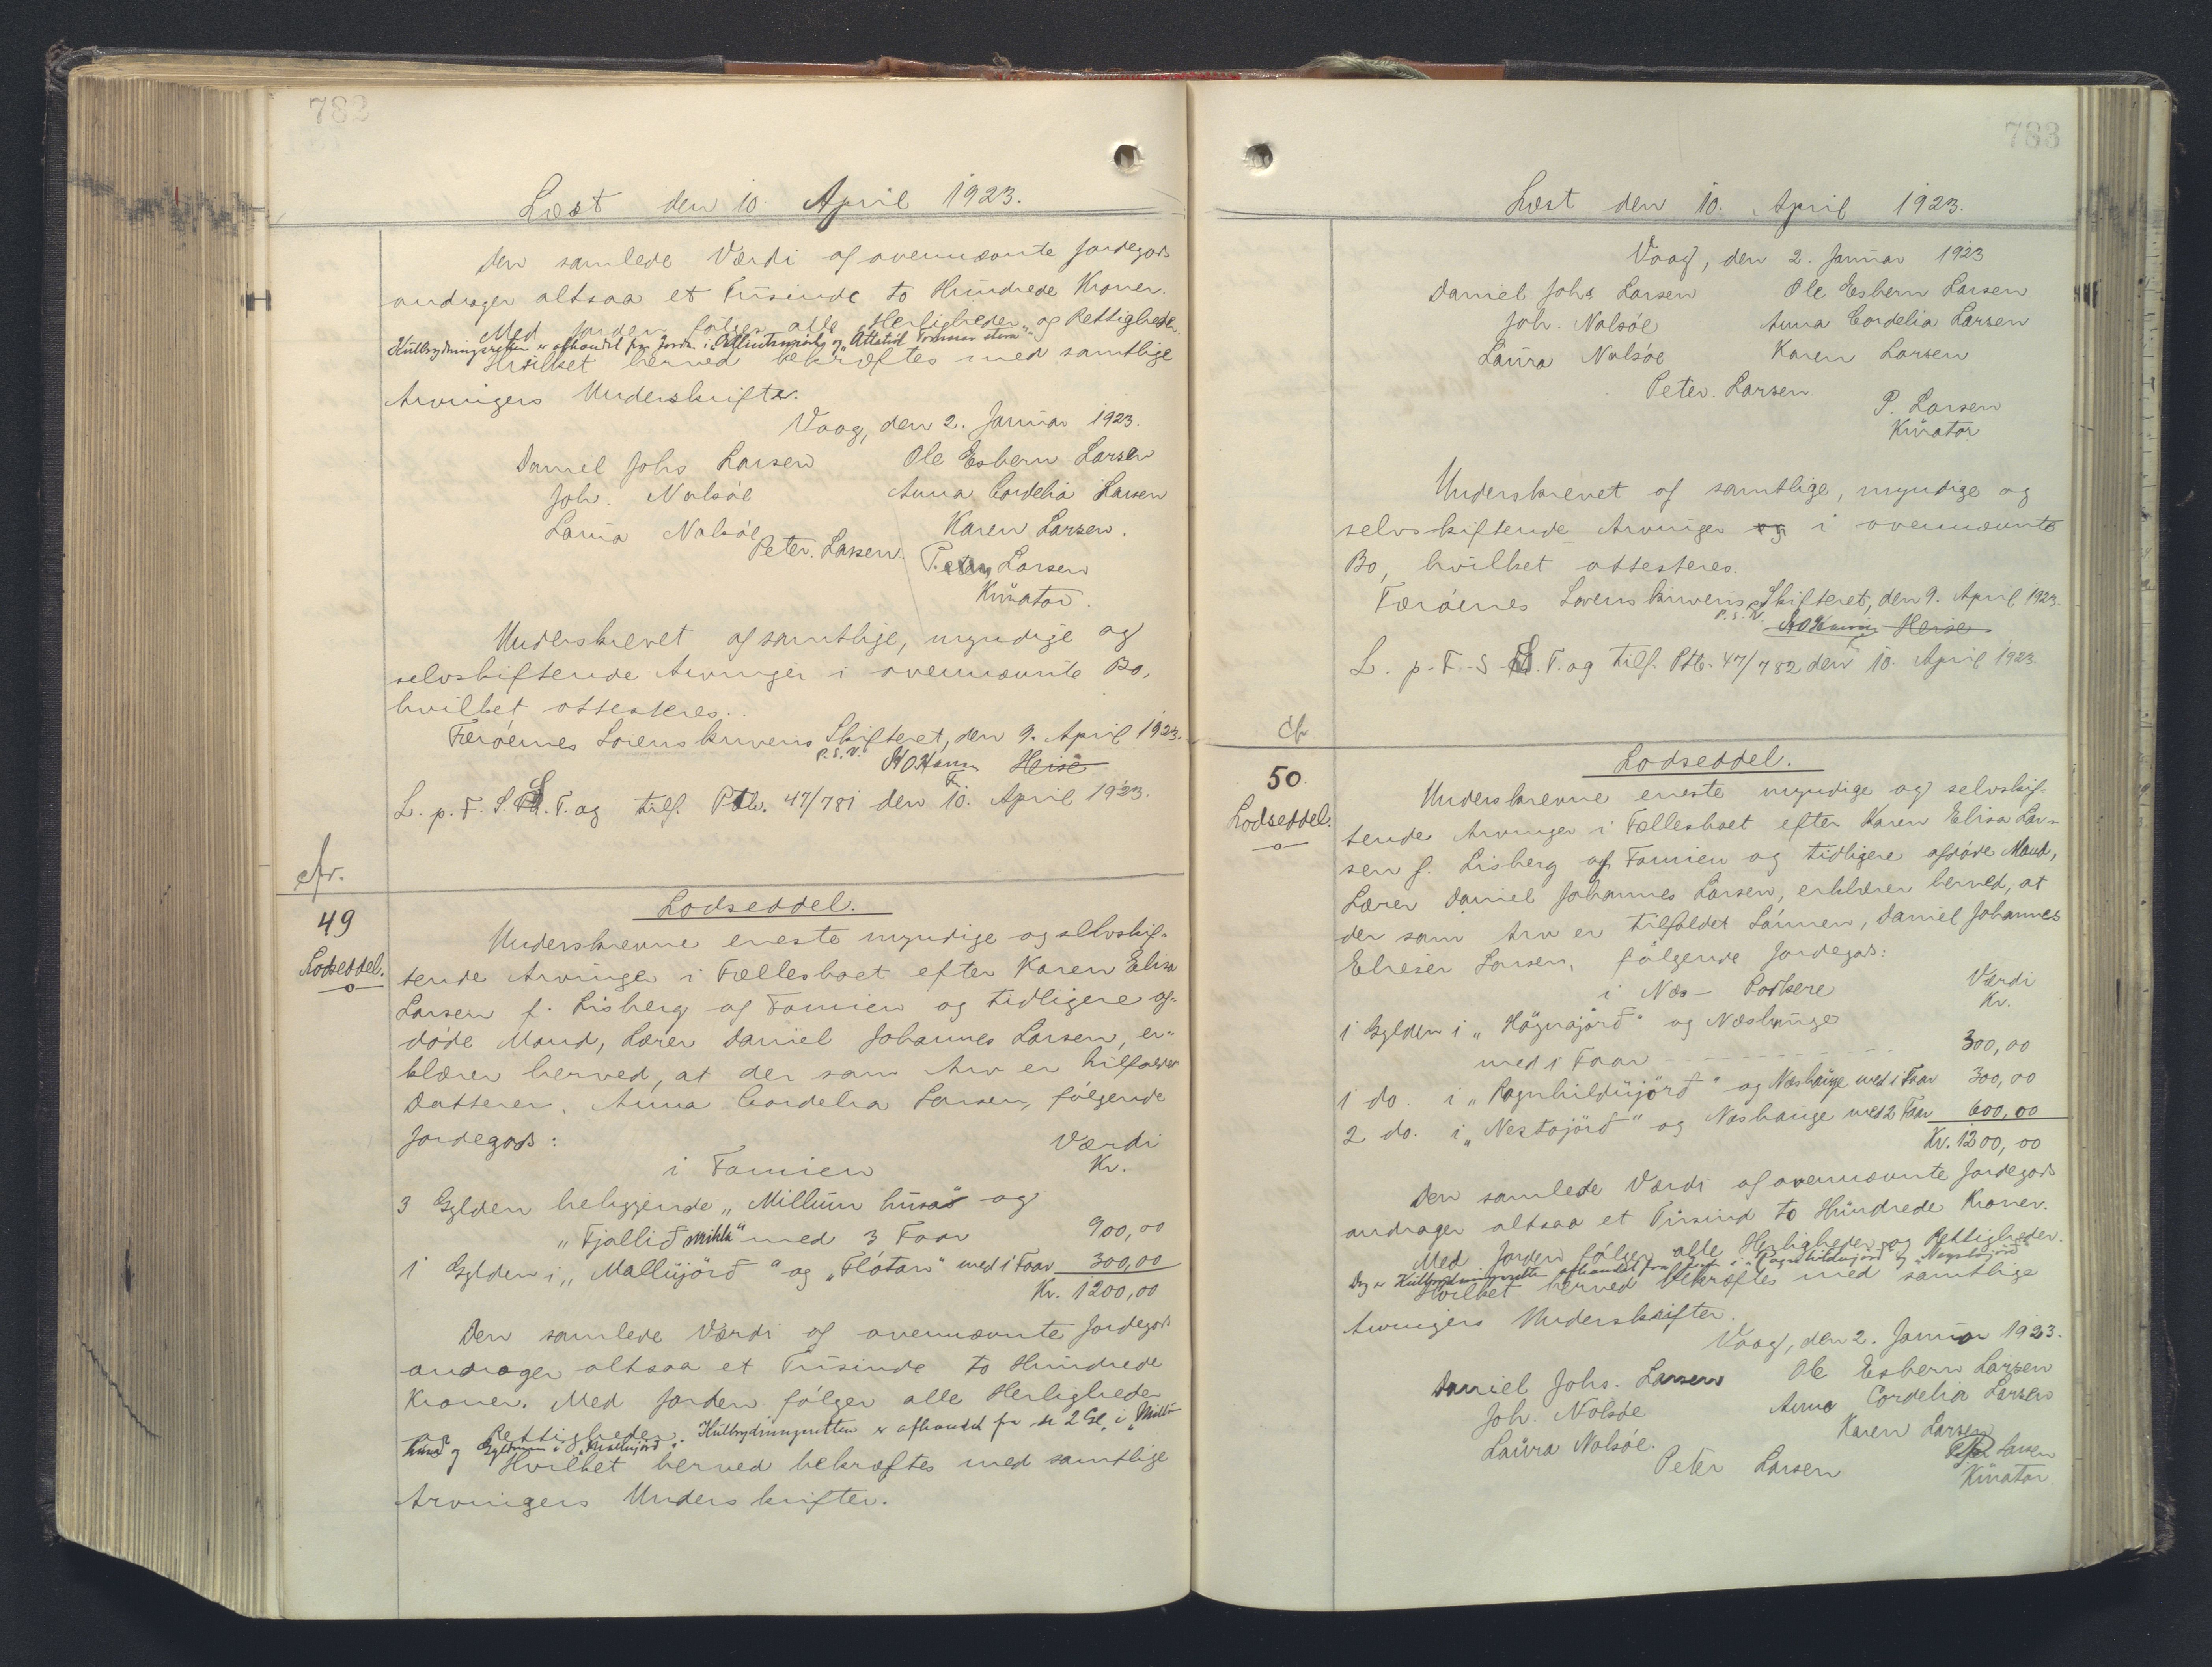 782
Læst den 10 April 1923.
Den samlede Værdi af ovennævnte Jordegods
andrager altsaa et Tusinde to Hundrede Kroner.
Med Jorden følger alle Herligheder og Rettigheder.
Kulbrydningsretten er afhændet fra Jorden i og
Hvilket herved bekræftes med samtlige
Arvingers Underskrifter.
Vaag, den 2. Januar 1923.
Daniel Johs Larsen Ole Esbern Larsen
Joh. Nolsøe Anna Cordelia Larsen
Laura Nolsøe Karen Larsen.
Peter. Larsen. P. Larsen
Kurator.
Underskrevet af samtlige, myndige og
selvskiftende Arvinger i ovennævnte Bo,
hvilket attesteres.
Færøernes Sorenskriveris Skifteret, den 9. April 1923.
P.S.V. Heise
L. p. F. S. T. og tilf. Ptb. 47/781 den 10. April 1923.
Afr.
49
Lodseddel.
Lodseddel.
Underskrevne eneste myndige og selvskif-
tende Arvinger i Fællesboet efter Karen Elisa
Larsen f. Lisberg af Famien og tidligere af-
døde Mand, Lærer Daniel Johannes Larsen, er-
klærer herved, at der som Arv er tilfaldet
Datteren, Anna Cordelia Larsen, følgende
Jordegods: Værdi
i Famien Kr.
3 Gylden beliggende "Millum húsa" og
"Fjallið mikla" med 3 Faar 900,00
1 Gylden i "Mallujørð" og "Fløtan" med 1 Faar 300,00
Kr. 1200,00
Den samlede Værdi af ovennævnte Jordegods
andrager altsaa et Tusinde to Hundrede
Kroner. Med Jorden følger alle Herligheder
og Rettigheder. Kulbrydningsretten er afhændet fra de 2 Gl. i "Millum
húsa" og Gyldenen i "Mallujørð".
Hvilket herved bekræftes med samtlige
Arvingers Underskrifter.
783
Læst den 10. April 1923.
Vaag, den 2. Januar 1923
Daniel Johs Larsen Ole Esbern Larsen
Joh. Nolsøe Anna Cordelia Larsen
Laura Nolsøe Karen Larsen
Peter. Larsen
P. Larsen
Kurator
Underskrevet af samtlige, myndige og
selvskiftende Arvinger og i ovennævnte
Bo, hvilket attesteres.
Færøernes Sorenskriveris Skifteret, den 9. April 1923.
P.S.V. Heise
L. p. F. S. T. og tilf. Ptb. 47/782 den 10. April 1923.
50
Lodseddel.
Lodseddel.
Underskrevne eneste myndige og selvskif-
tende Arvinger i Fællesboet efter Karen Elisa Lar-
sen f. Lisberg af Famien og tidligere afdøde Mand,
Lærer Daniel Johannes Larsen, erklærer herved, at
der som Arv er tilfaldet Sønnen, Daniel Johannes
Elieser Larsen, følgende Jordegods:
i Næs - Porkere Værdi
Kr.
1 Gylden i "Høgnajørð" og Næshauge
med 1 Faar 300,00
1 do. i "Ragnhildujørð" og Næshauge med 1 Faar 300,00
2 do. i "Nestajørð" og Næshauge med 2 Faar 600,00
Kr. 1200,00
Den samlede Værdi af ovennævnte Jordegods
andrager altsaa et Tusind to Hundrede Kroner.
Med Jorden følger alle Herligheder og Rettigheder.
Dog er Kulbrydningsretten afhændet fra Jord i "Ragnhildujørð" og
Hvilket herved bekræftes med samtlige
Arvingers Underskrifter.
Vaag, den 2. Januar 1923.
Daniel Johs. Larsen Ole Esbern Larsen
Joh. Nolsøe Anna Cordelia Larsen
Laura Nolsøe. Karen Larsen
Peter Larsen Larsen
Kurator.